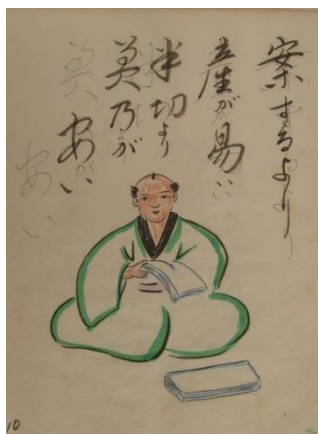 案ずるより
産が易い
半切より
美乃が
安い
美
安い
10